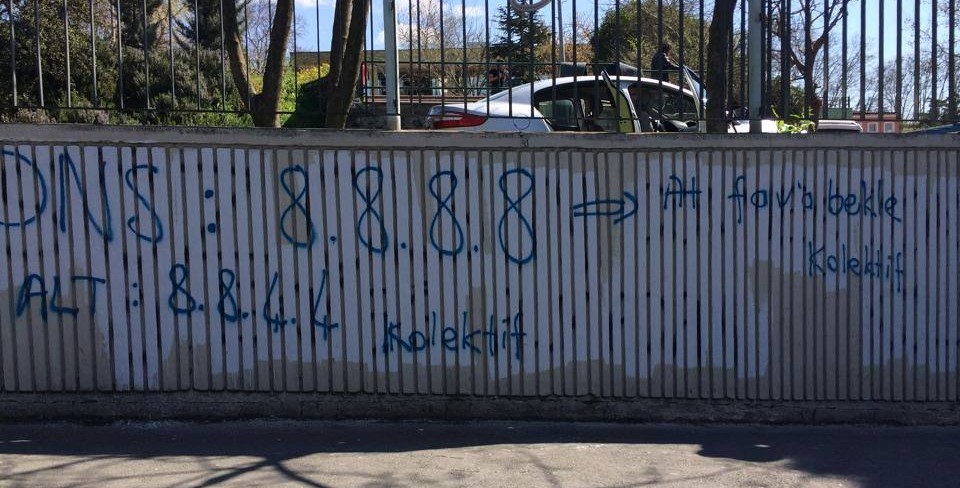 DNS : 8.8.8.8 ⇒ At fav'a bekle
Kolektif
ALT : 8.8.4.4
Kolektif